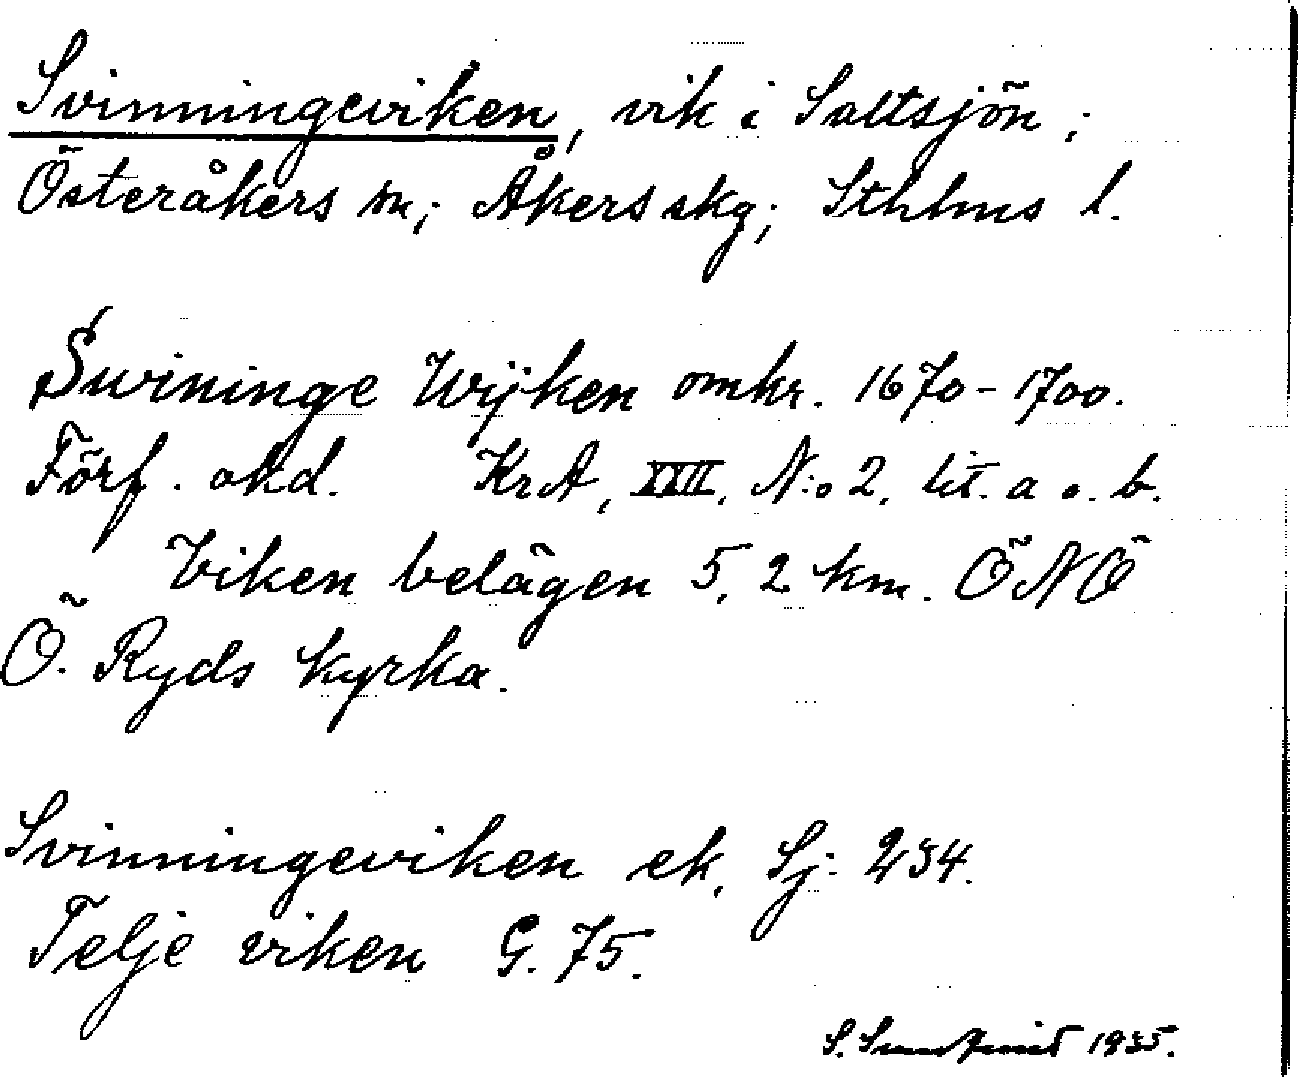 Svinningeviken, vik i Saltsjön;
Österåkers sn; Åkers skg; Sthlms l.
Swininge Wijken omkr. 1670-1700.
Förf. okd. KrA, XXII, N:o 2, lit. a o. b.
Viken belägen 5,2 km. ÖNÖ
Ö. Ryds kyrka.
Svinningeviken ek. Sj: 234.
Telje viken G. 75.
S. Sundqvist 1935.